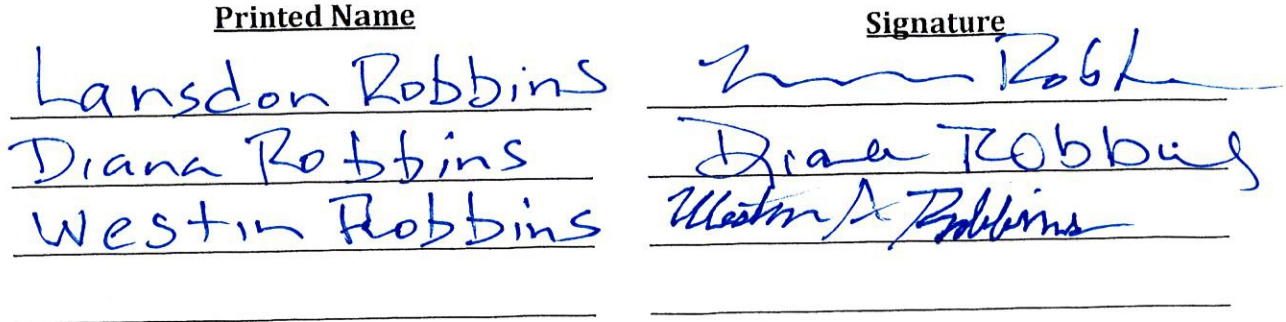 Printed Name Signature
Lansdon Robbins Rob
Diana Robbins Diana Robbins
Westin Robbins Westin A Robbins